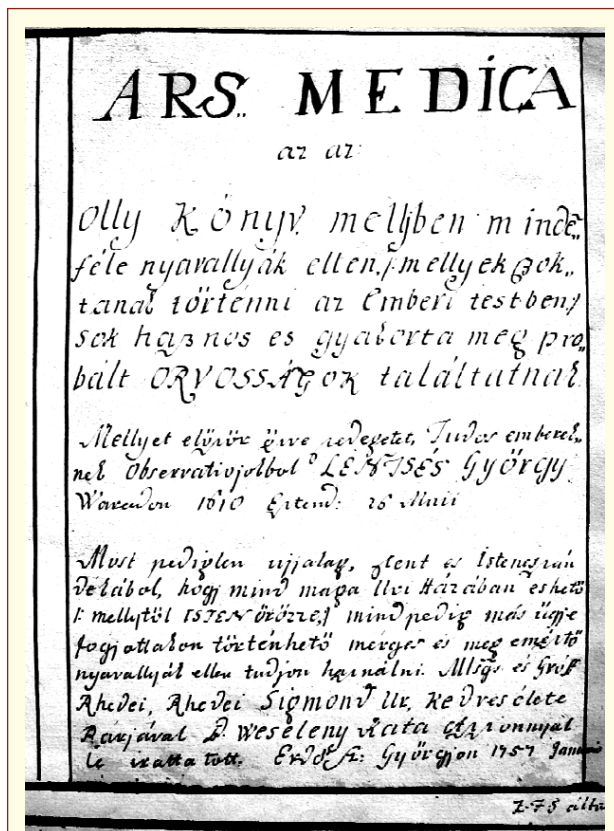 ARS MEDICA
az az:
Olly Könyv. mellyben minde„
féle nyavallyák ellen, /: mellyek szok„
tanak történni az Emberi testben /
sok hasznos es gyakorta meg pro„
bált ORVOSSÁGOK találtatnak.
Mellyet először szedegetet, Tudos emberek„
nek Observatiojokbol LENTSÉS György
Waradon 1610 28 Maii
Most pedig ujjalag, szent es Istenes
dékábol, hogy mind maga Uri Házában eshető
/: mellytöl ISTEN Örözze,/ mind pedig más ügye
fogjottakon történhető mérges és meg emésztő
nyavallyák ellen tudjon hasznalni. Mlsgs és Groff
Rhedei, Rhedei Sigmond Ur. Kedves élete
Párjával Weseleny Kata Aszszonnyal
le iratta tott. Erdő Sz: Györgyön 1757 Januar
Z. F S által